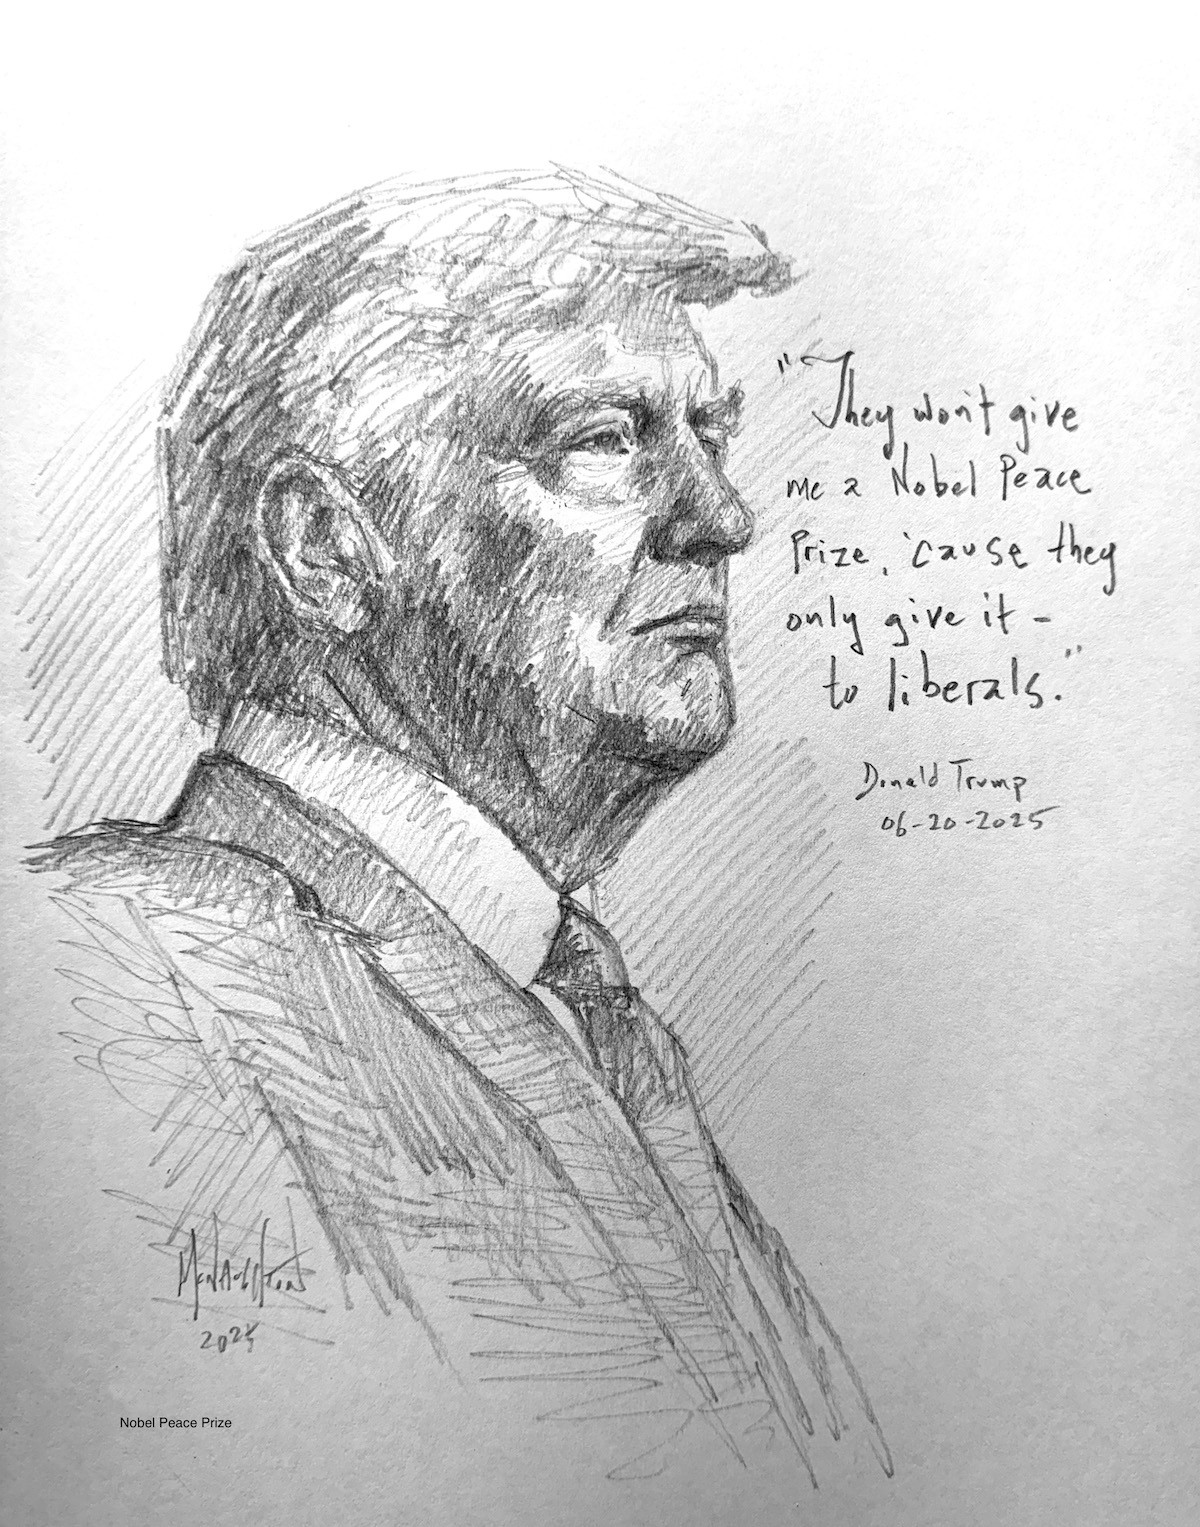 "They won't give
me a Nobel Peace
Prize, 'cause they
only give it -
to liberals."
Donald Trump
06-20-2025
2025
Nobel Peace Prize